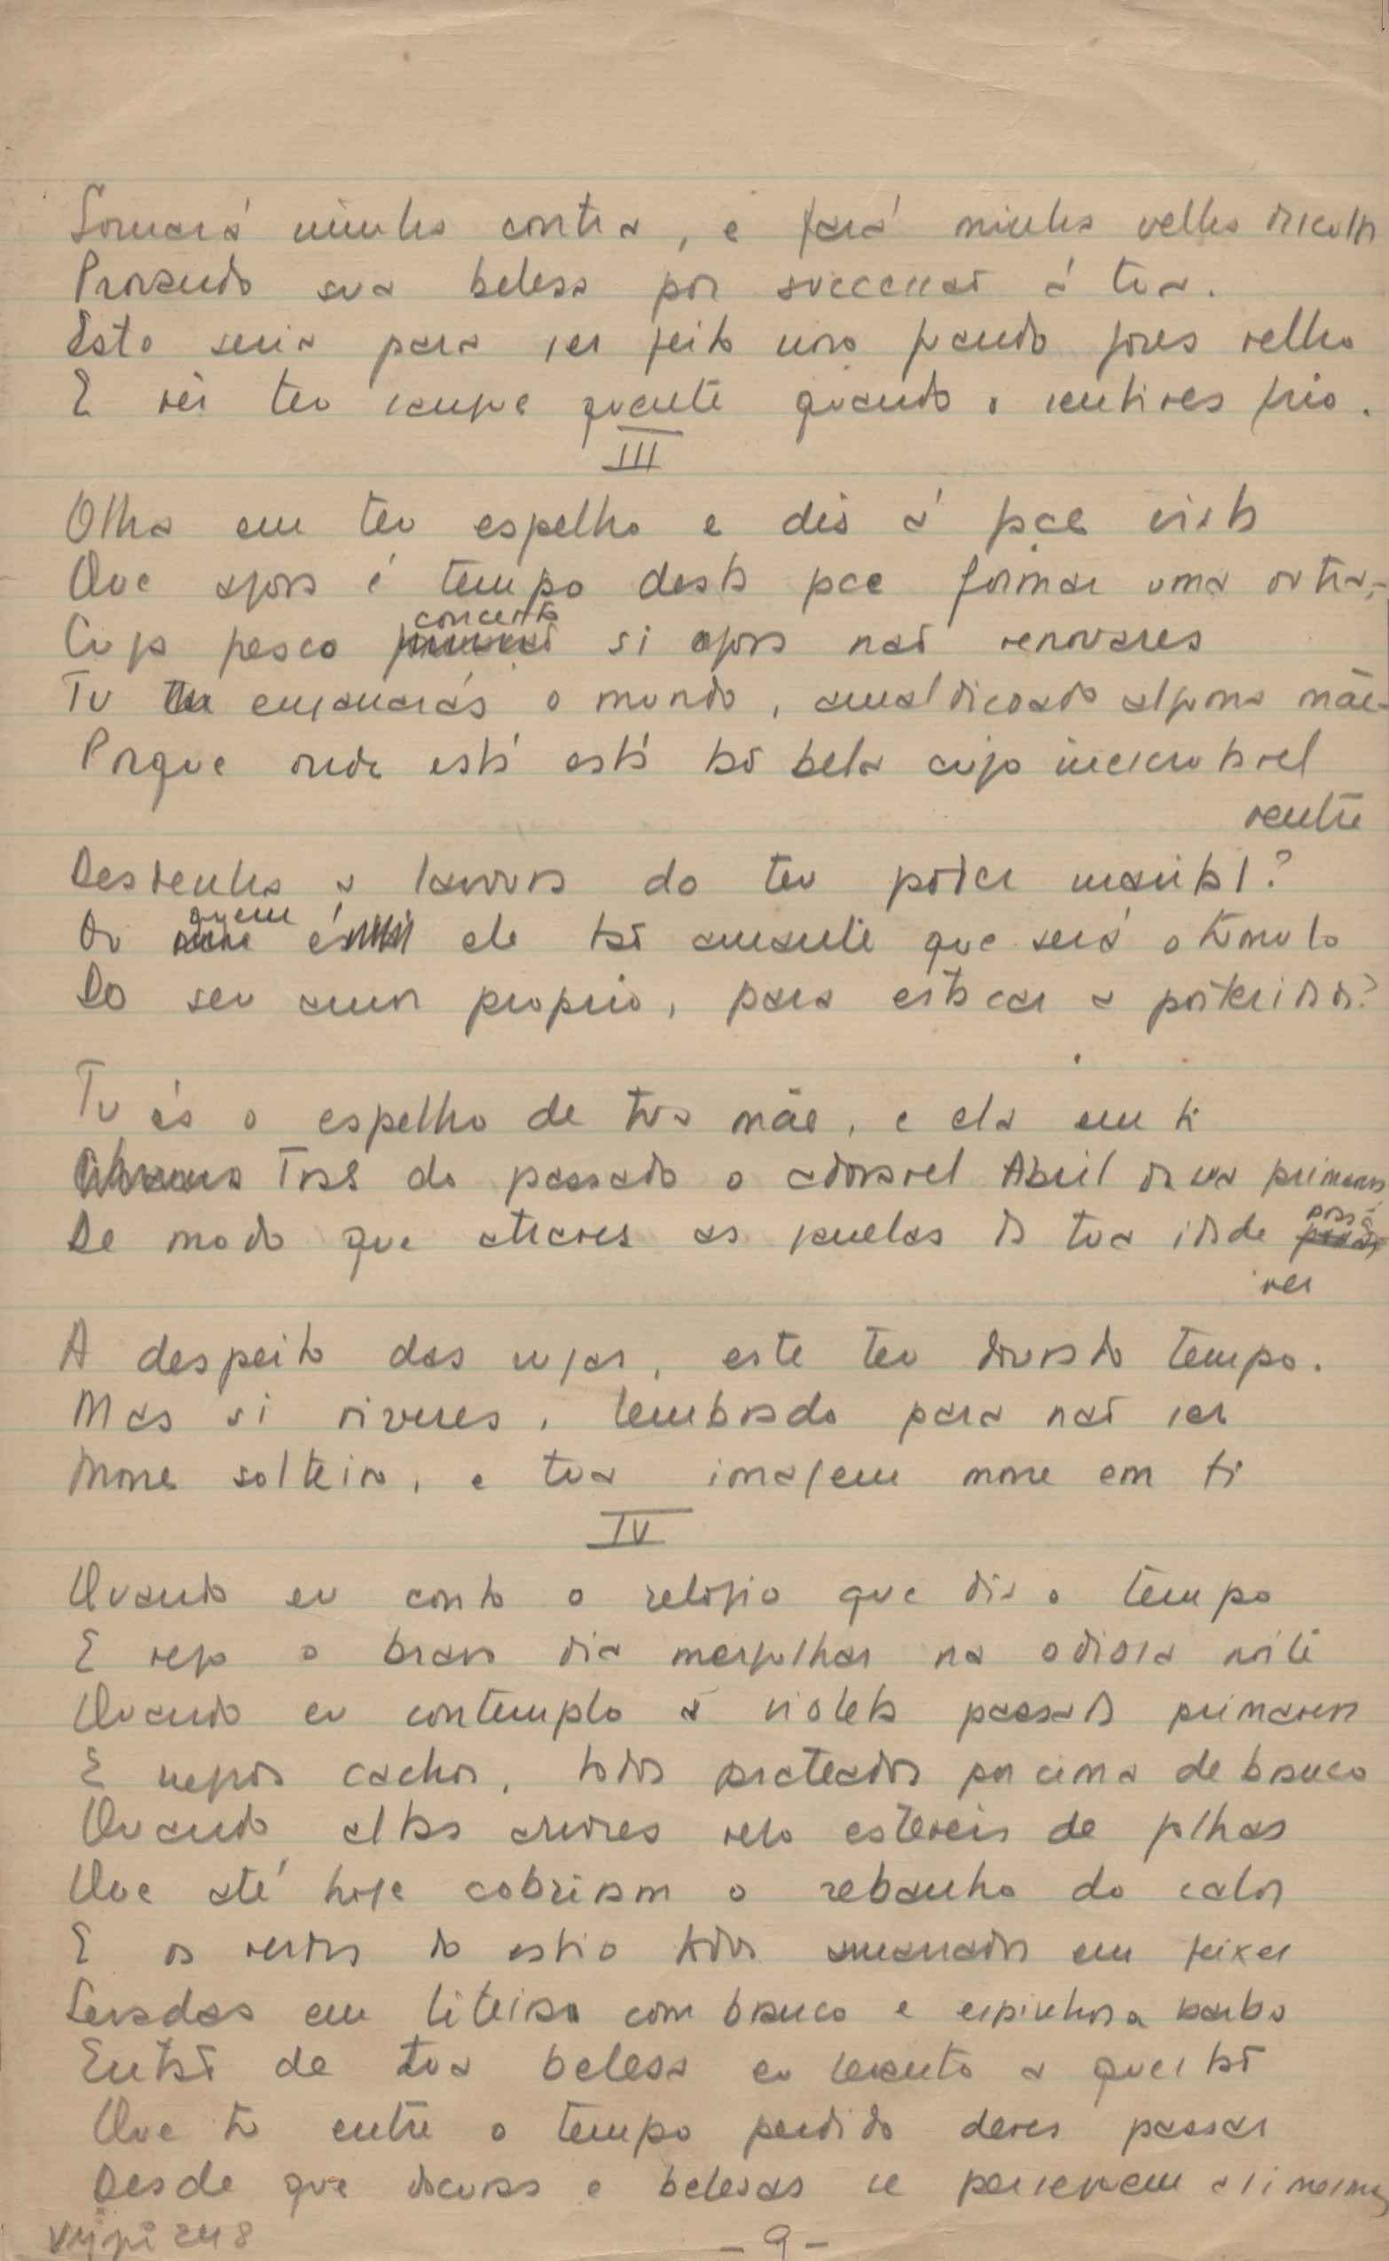 Somará minha conta, e fará minha velha disculpa
Provando sua belesa por sucessaõ á tua.
Esto seria para ser feito novo quando fores velho
E vêr teu sangue quente quando o sentires frio.
III
Olha em teu espelho e dis á face vista
Que agora é tempo desta face formar uma outra,
Cujo fresco concerto si agora naõ renovares
Tu enganarás o mundo, amaldicoado alguma mãe
Porque onde está está taõ bela cujo inescrutavel
ventre
Desdenha a lavoura do teu poder marital?
Ou quem é ele taõ amante que será o tumulo
Do seu amor proprio, para estacar a posteridade?
Tu és o espelho de tua mãe, e ela em ti
Tras do passado o adoravel Abril da sua primavera
De modo que atraves as janelas da tua idade possa
ver
A despeito das rugas, este teu dourado tempo.
Mas si viveres, lembrado para naõ ser
Morre solteiro, e tua imagem morre em ti
IV
Quando eu conto o relogio que dis o tempo
E vejo o bravo dia mergulhar na odiosa noite
Quando eu contemplo a violeta passada primavera
E negros cachos, todos prateados por cima de branco
Quando altas arvores vejo estereis de folhas
Que até hoje cobriam o rebanho do calor
E os verdes do estio todos amarrados em feixes
Levadas em liteira com branco e espinhosa barba
Entaõ de tua belesa eu levanto a questaõ
Que tu entre o tempo perdido deves passar
Desde que docuras e belesas se a si mesmas
- 9 -